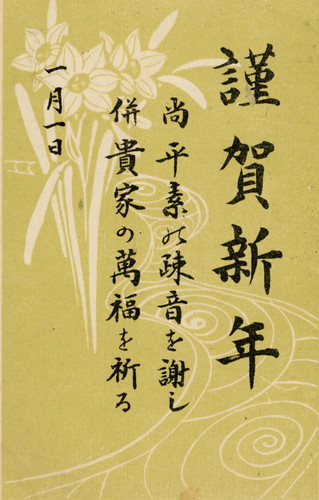 謹賀新年
尚平素の疎音を謝し
併貴家の萬福を祈る
一月一日